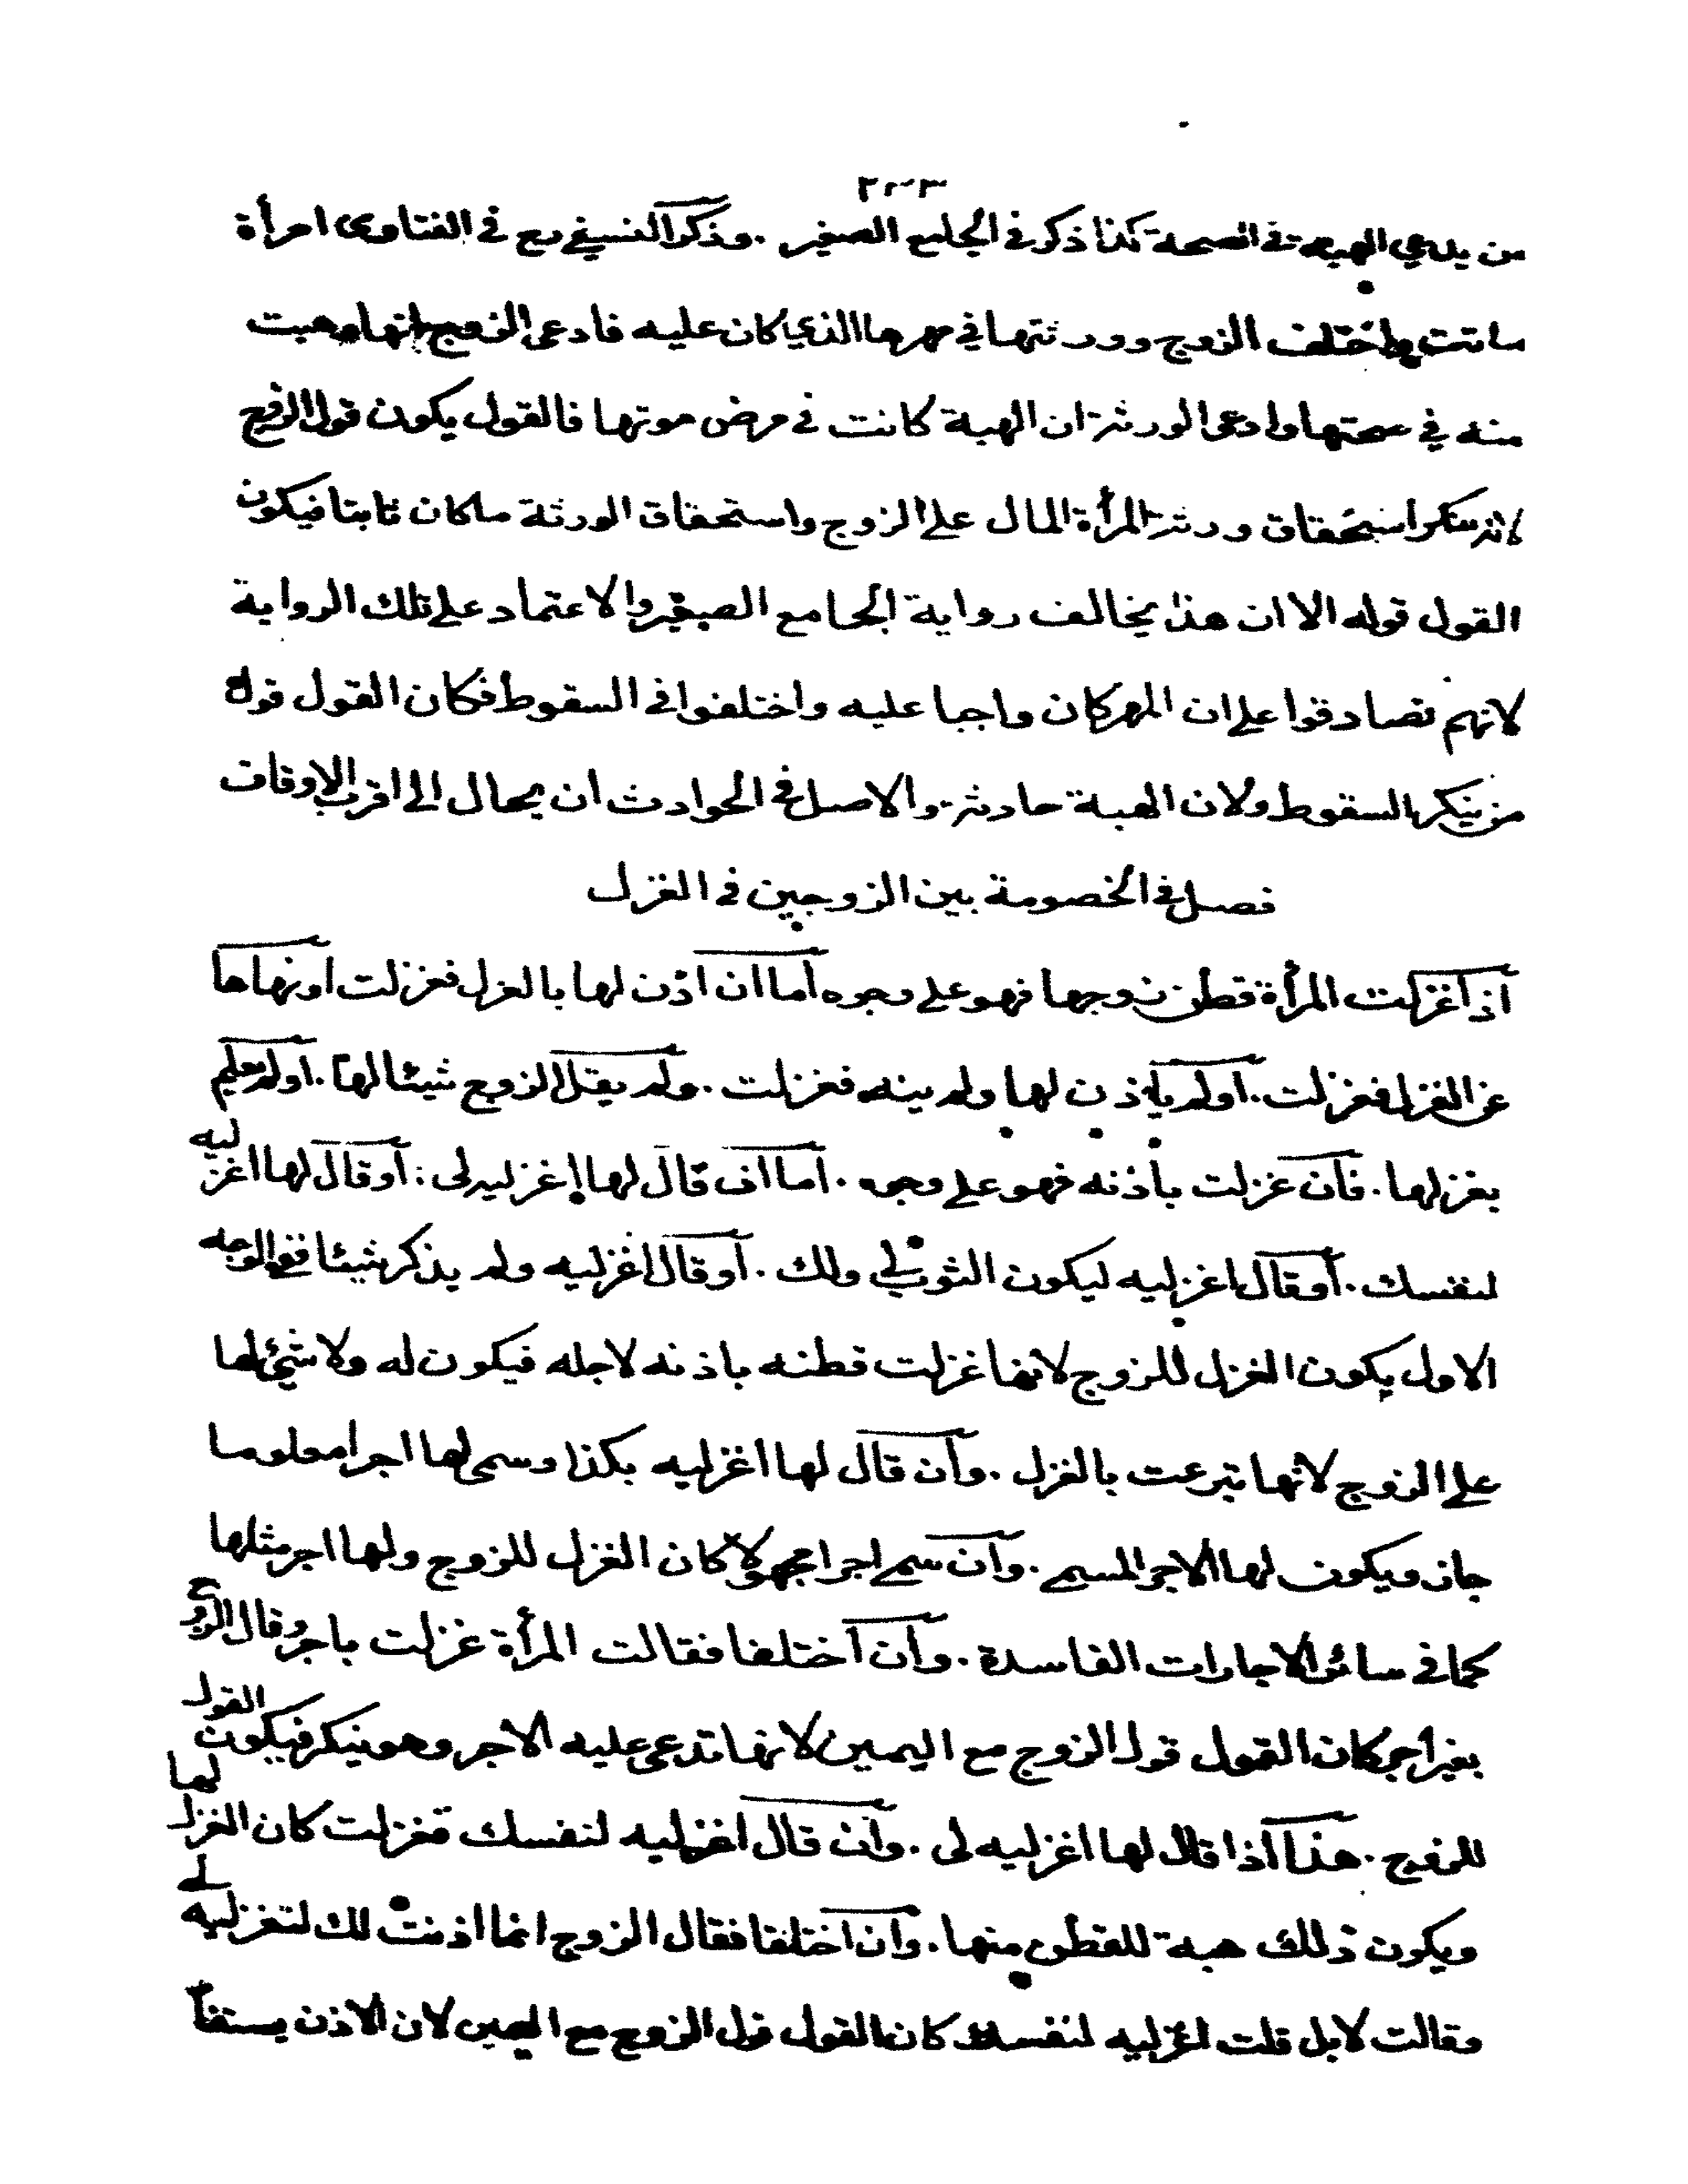 من يدعي الهبة في الصحة كذا ذكر في الجامع الصغير . وذكر النسفي رح في الفتاوى امرأة
ماتت واختلف الزوج وورثتها في مهرها الذي كان عليه فادعى الزوج انها وهبت
منه في صحتها وادعى الورثة ان الهبة كانت في مرض موتها فالقول يكون قول الزوج
لانه ينكر استحقاق ورثة المرأة المال على الزوج واستحقاق الورثة ما كان ثابتا فيكون
القول قوله الا ان هذا يخالف رواية الجامع الصغير والاعتماد على تلك الرواية
لانهم تصادقوا على ان المهر كان واجبا عليه واختلفوا في السقوط فكان القول قول
من ينكر السقوط ولان الهبة حادثة والاصل في الحوادث ان يحال الى اقرب الاوقات
فصل في الخصومة بين الزوجين في الغزل
اذا غزلت المرأة قطن زوجها فهو على وجوه اما ان اذن لها بالغزل فغزلت او نهاها
عن الغزل فغزلت . او لم يأذن لها ولم ينه فغزلت . ولم يقل الزوج شيئا لها . او لم يعلم
بغزلها . فان غزلت باذنه فهو على وجوه . اما ان قال لها اغزليه لي : او قال لها اغزليه
لنفسك . او قال اغزليه ليكون الثوب لي ولك . او قال اغزليه ولم يذكر شيئا ففي الوجه
الاول يكون الغزل للزوج لانها غزلت قطنه باذنه لاجله فيكون له ولا شئ لها
على الزوج لانها تبرعت بالغزل . وان قال لها اغزليه بكذا وسمى لها اجرا معلوما
جاز ويكون لها الاجر المسمى . وان سمى اجرا مجهولا كان الغزل للزوج ولها اجر مثلها
كما في سائر الاجارات الفاسدة . وان اختلفا فقالت المرأة غزلت باجر وقال الزوج
بغير اجر كان القول قول الزوج مع اليمين لانها تدعى عليه الاجر وهو ينكر فيكون القول
للزوج . هذا اذا قال لها اغزليه لى . وان قال اغزليه لنفسك فغزلت كان الغزل لها
ويكون ذلك هبة للقطن منها . وان اختلفا فقال الزوج انما اذنت لك لتغزليه لي
وقالت لا بل قلت اغزليه لنفسك كان القول قول الزوج مع اليمين لان الاذن يستفاد